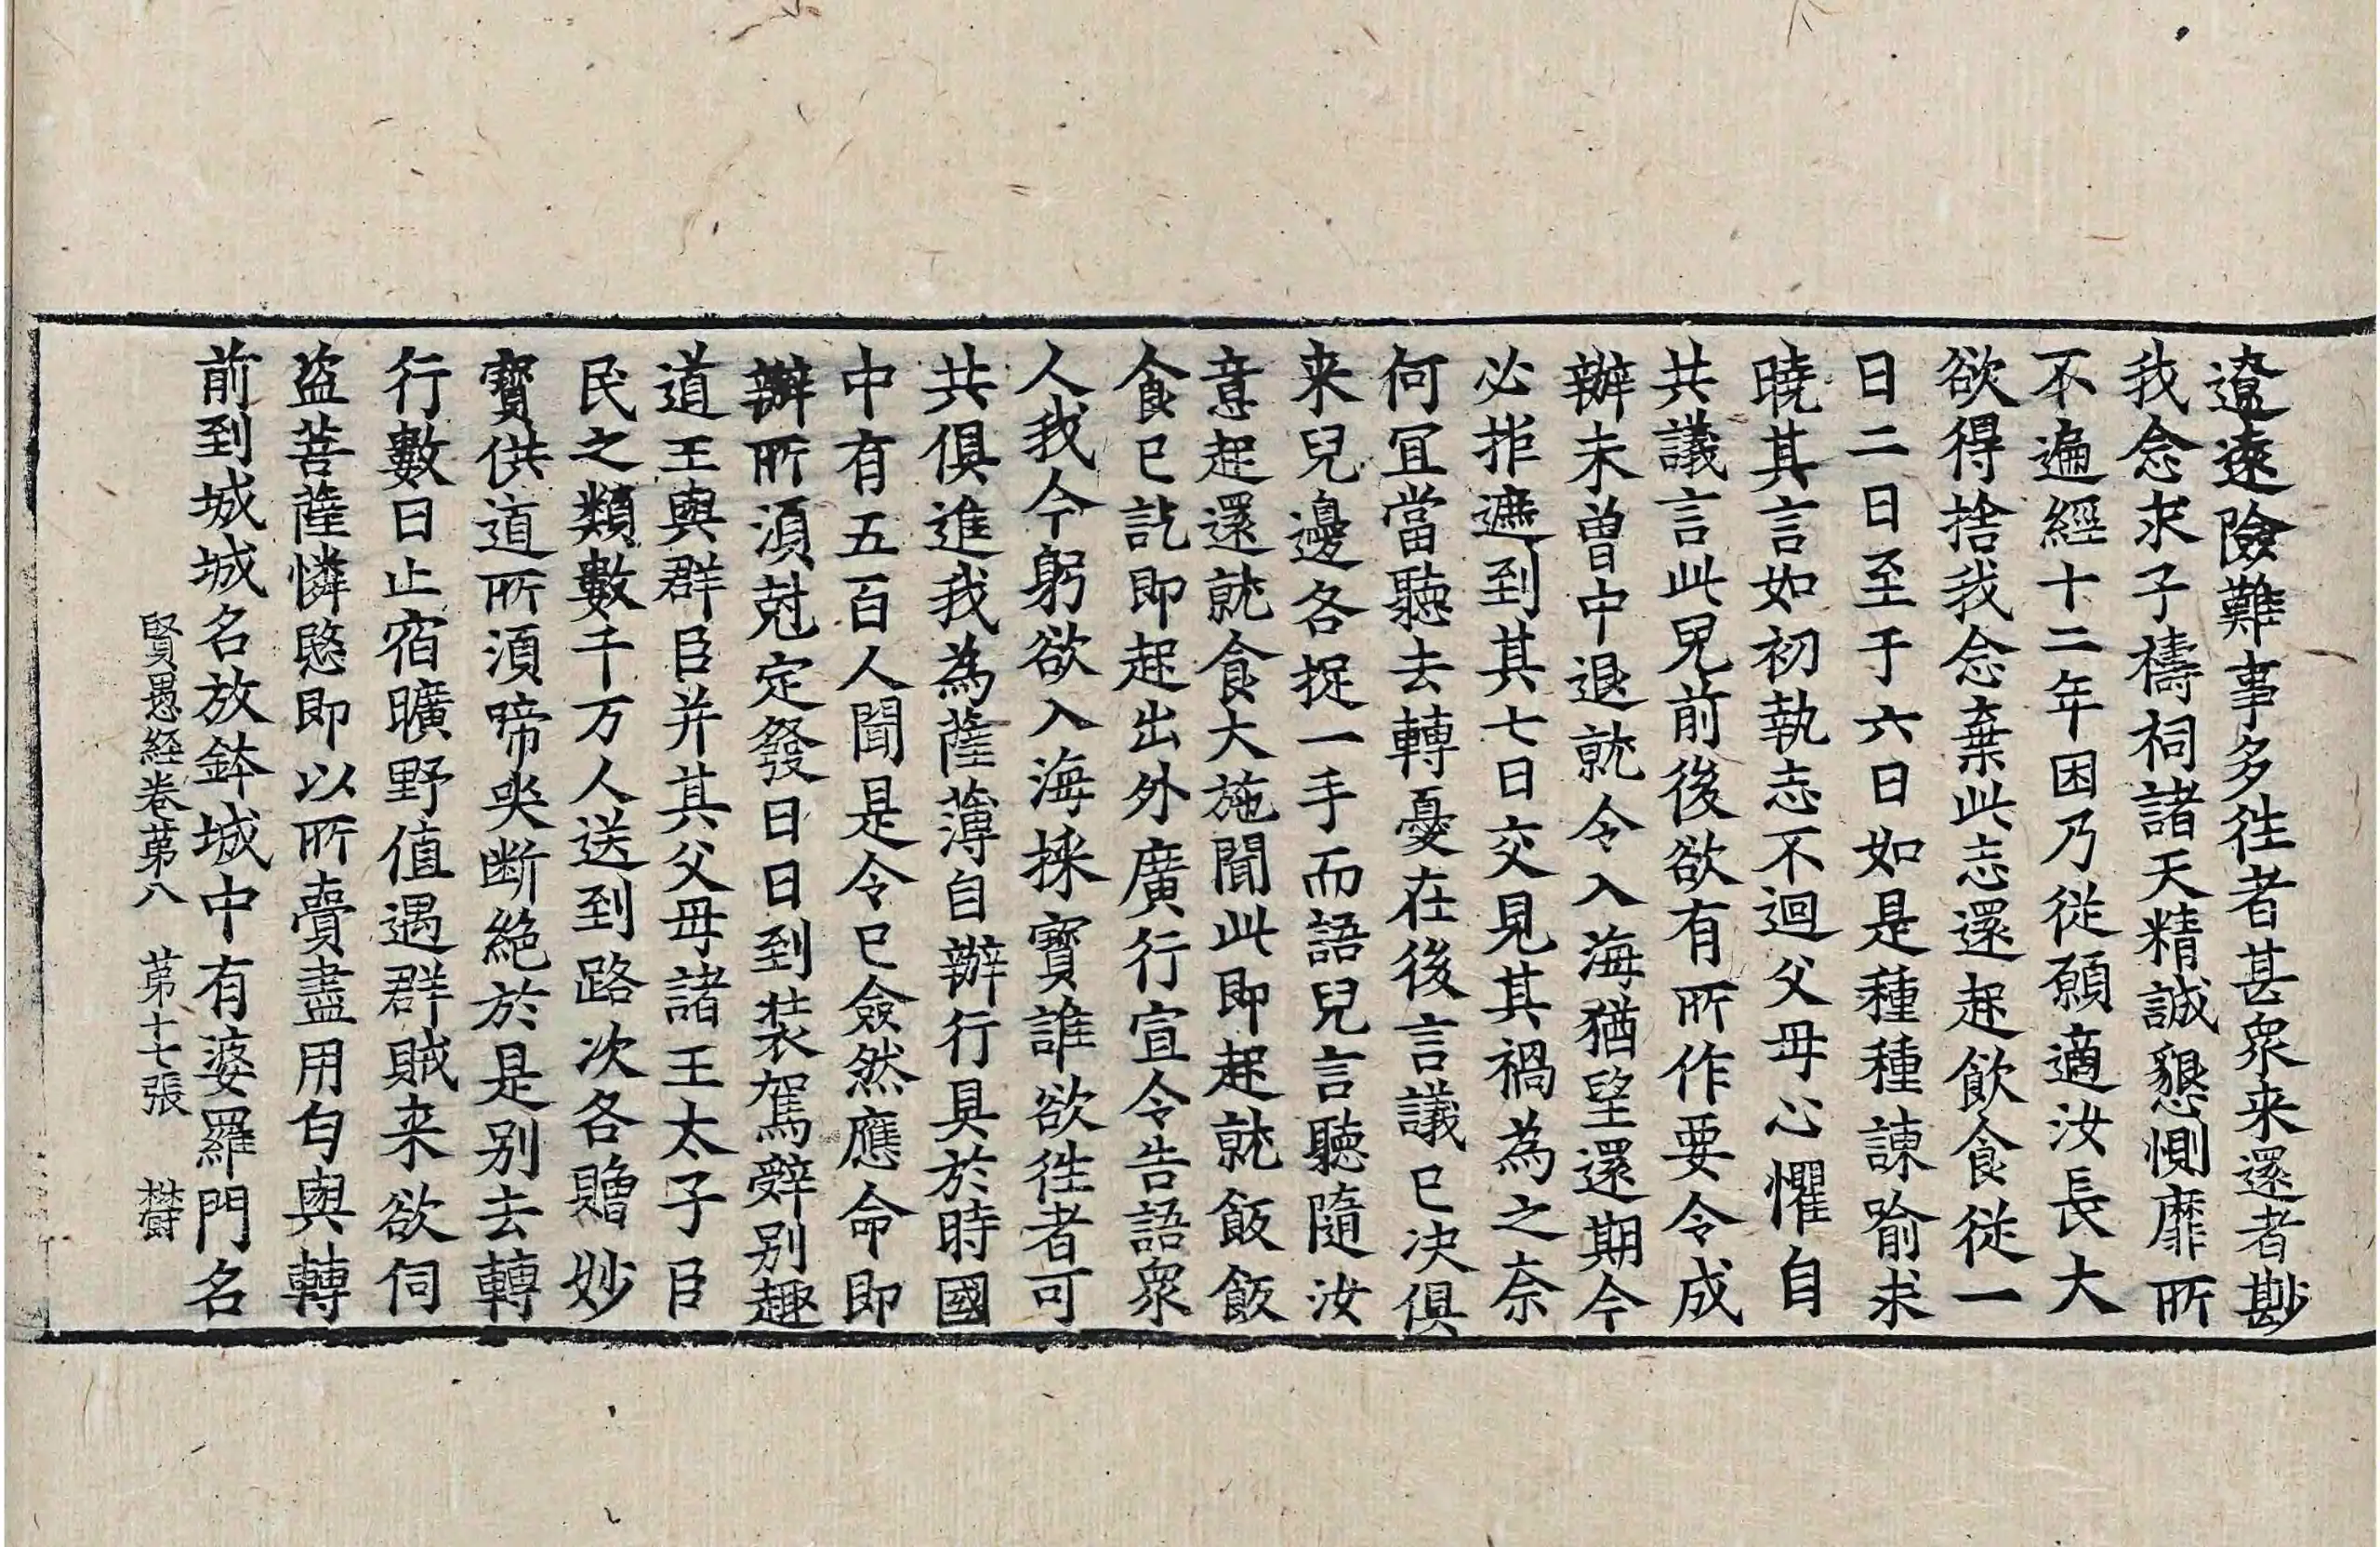 遼遠險難事多徃者甚衆来還者尠
我念求子禱祠諸天精誠懇惻靡所
不遍經十二年困乃従願適汝長大
欲得捨我念棄此志還起飲食従一
日二日至于六日如是種種諫喻求
曉其言如初執志不迴父母心懼自
共議言此兒前後欲有所作要令成
辦未曽中退就令入海猶望還期今
必拒遮到其七日交見其禍為之奈
何冝當聽去轉憂在後言議已决俱
来兒邊各捉一手而語兒言聽隨汝
意起還就食大施聞此即起就飯飯
食已訖即起出外廣行宣令告語衆
人我今躬欲入海採寶誰欲徃者可
共俱進我為薩薄自辦行具於時國
中有五百人聞是令已僉然應命即
辦所湏尅定發日日到裝駕辭別趣
道王與群臣并其父母諸王太子臣
民之類數千万人送到路次各贈妙
寶供道所湏啼哭断絶於是別去轉
行數日止宿曠野值遇群賊来欲伺
盜菩薩憐愍即以所賷盡用匄與轉
前到城城名放鉢城中有婆羅門名
賢愚経卷苐八　苐十七張　欝